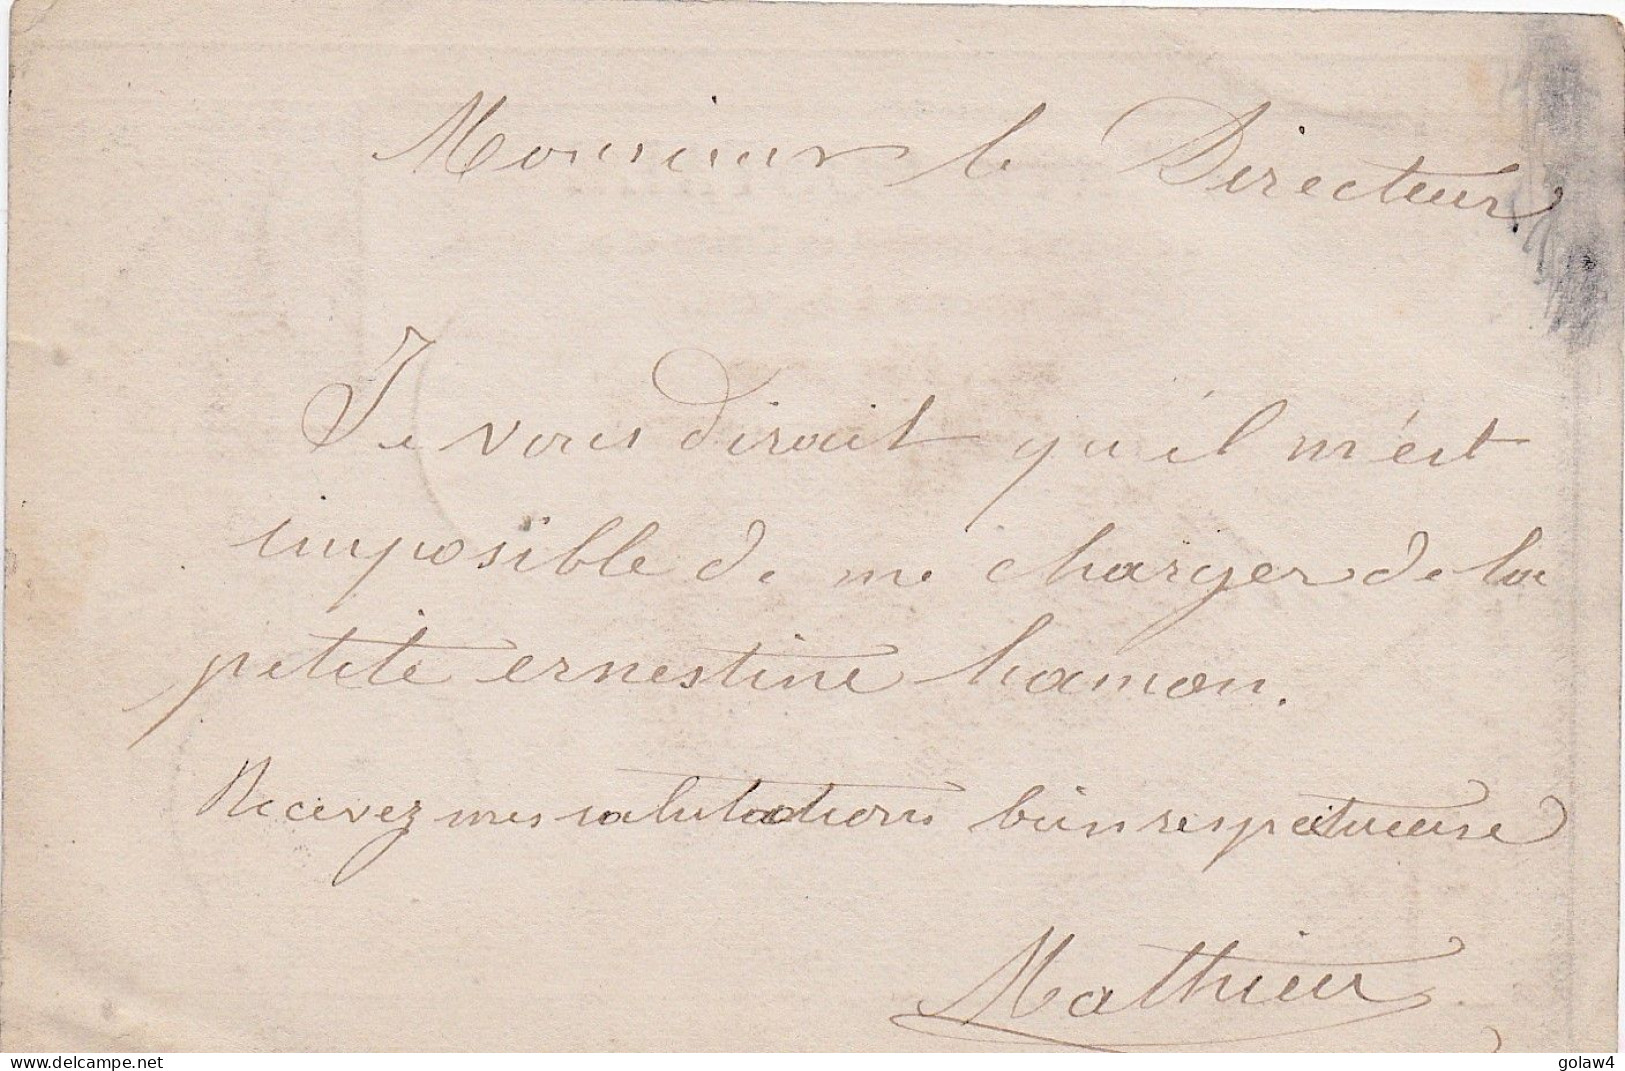 Monsieur le Directeur
Je vous dirait qu'il m'est
imposible de me charger de la
petite ernestine hamon.
Recevez mes salutations bien respectueuse
Mathieu
golaw4